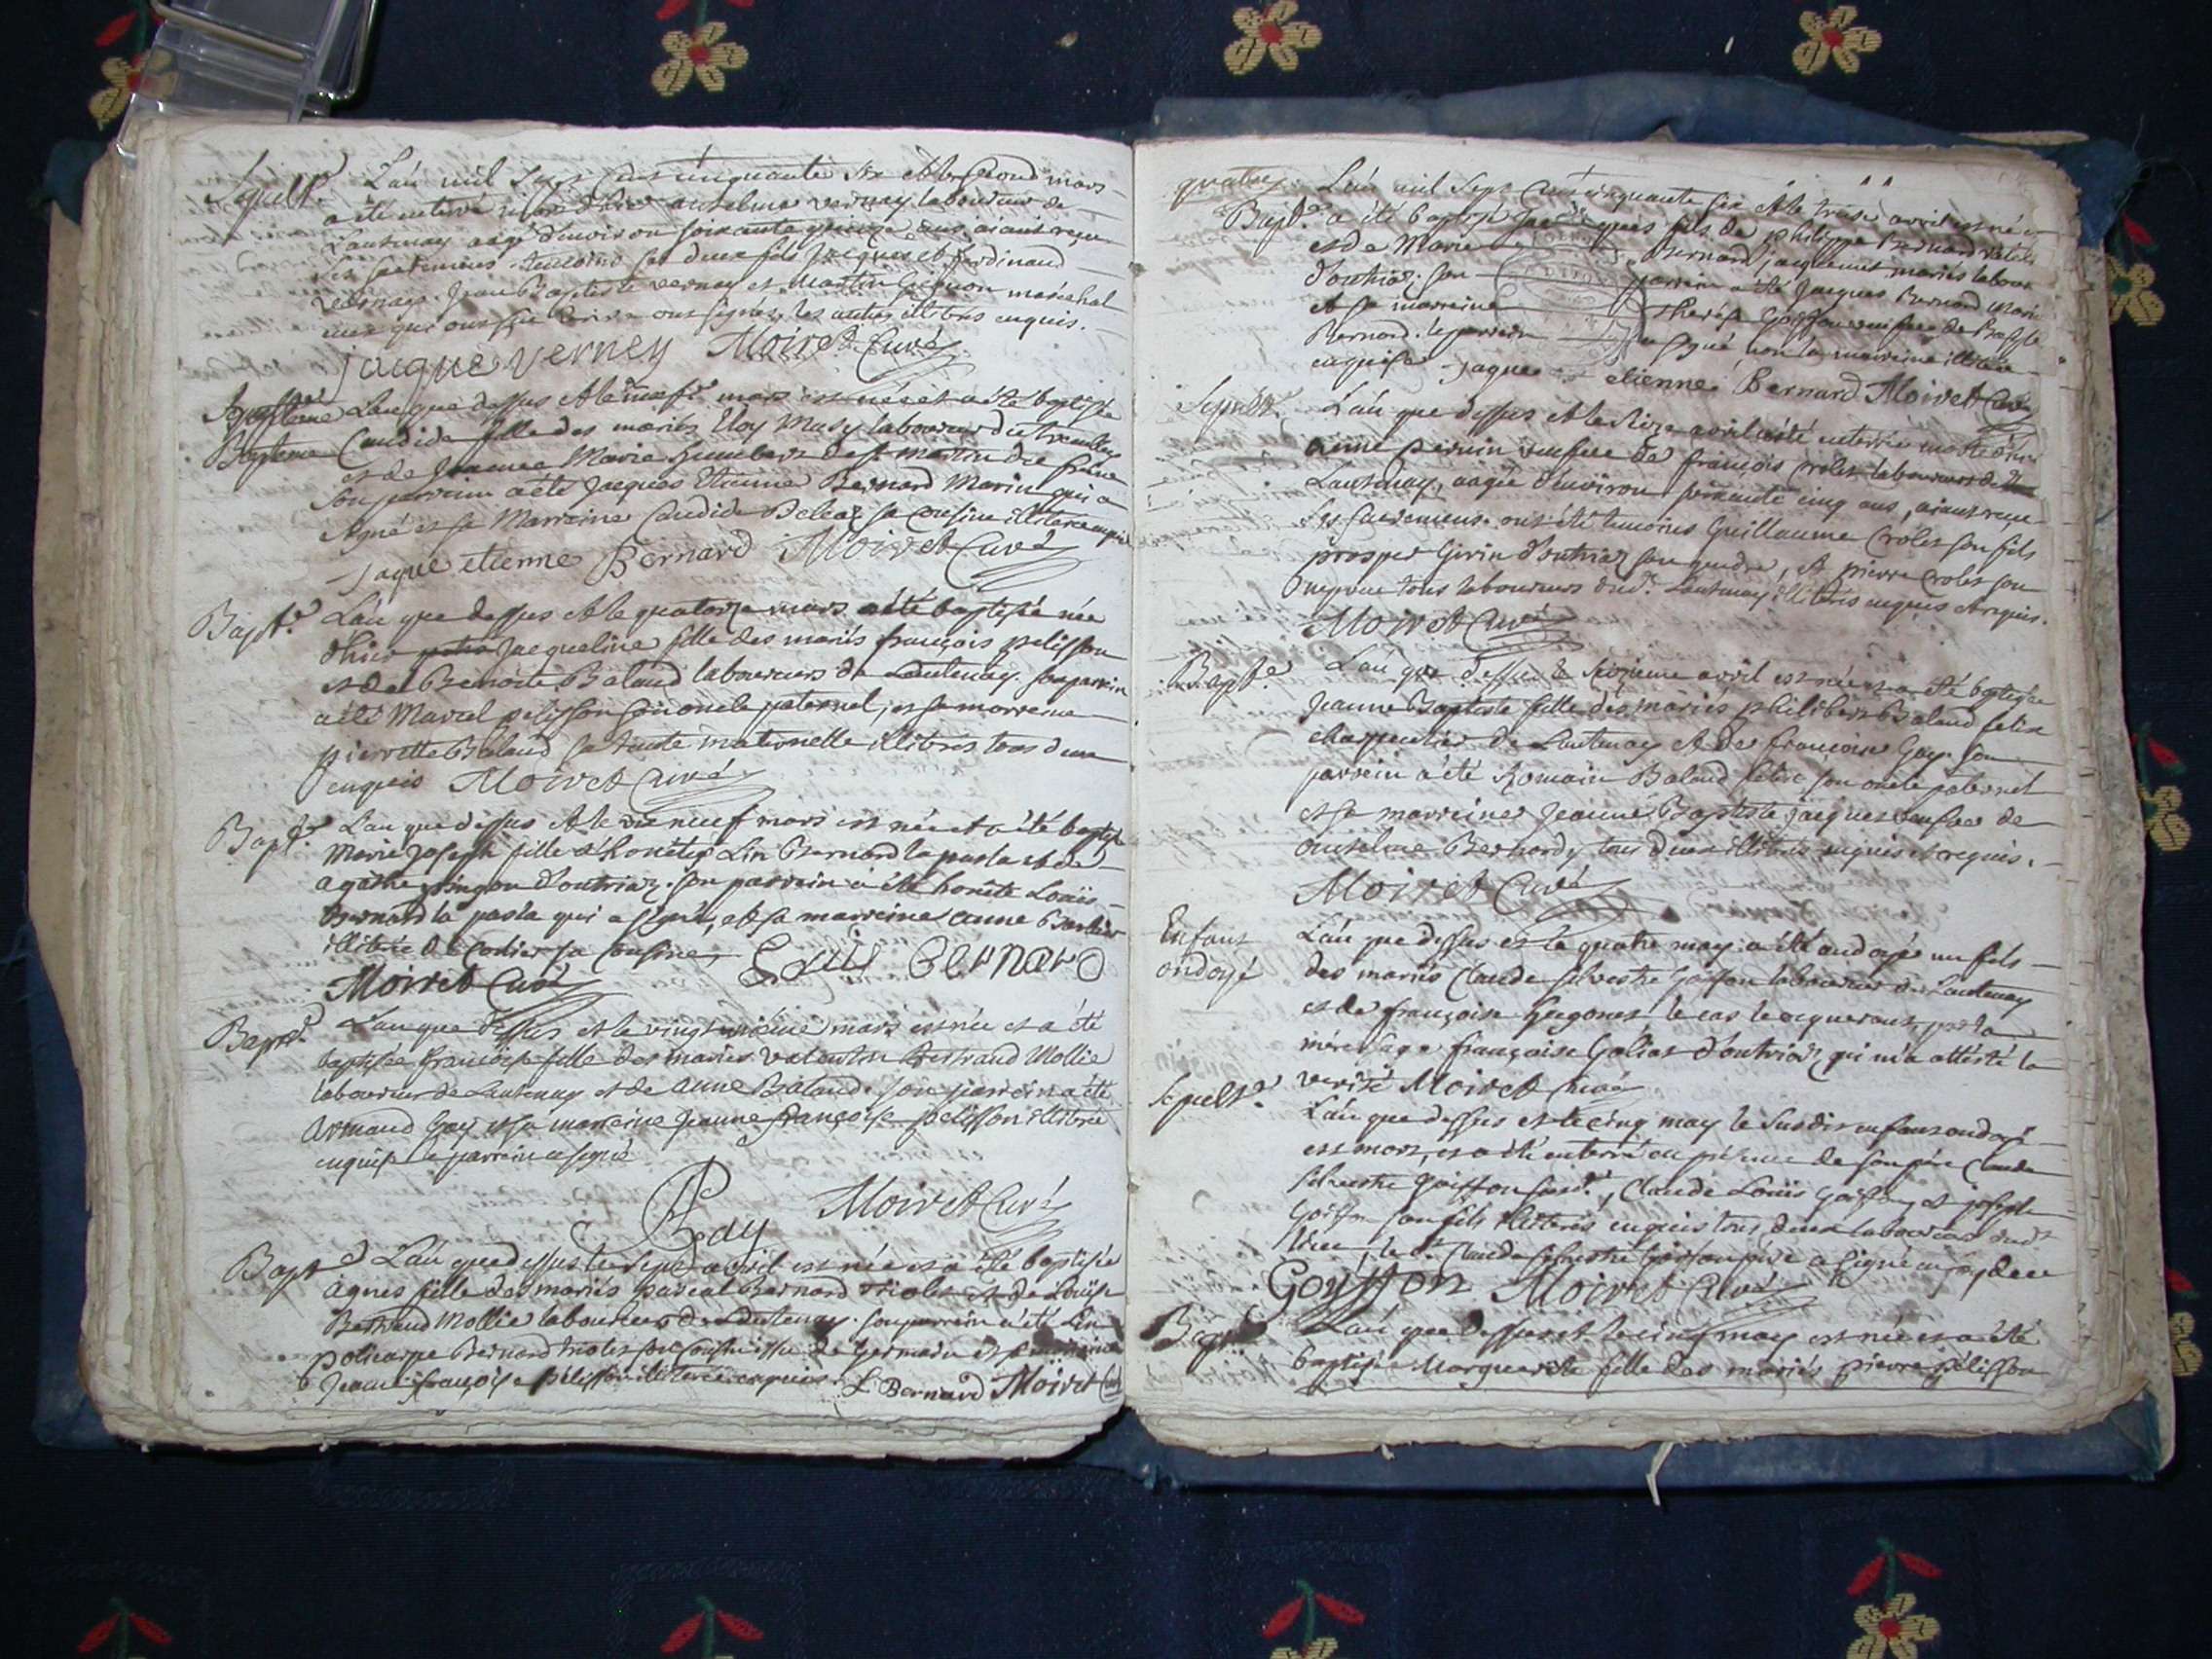 Sepult.re L'an mil sept cent cinquante six et le second mars
a été enterré mort d'hier anselme vernay laboureur de
Lantenay aagé d'environ soixante quinze ans, aiant reçu
les sacremens. temoins ses deux fils Jacques et ferdinand
vernay. Jean Baptiste vernay et Martin maréchal
ceux qui ont sçu écrire ont signés, les autres illitrés enquis.
jacque verney Moiret Curé
Baptême L'an que dessus et le neuf mars est née et a été baptisée
Candide fille des mariés Eloy Musy laboureur du tremblay
et de Jeanne Marie humbert de st martin du frêne
son parrain a été Jacques Etienne Bernard Marin qui a
signé et sa Marraine Candide Beleaz sa cousine illitrée enquise
jaque etienne Bernard Moiret Curé
Bapt.e L'an que dessus et le quatorze mars a été baptisée née
d'hier Jacqueline fille des mariés françois pelisson
et de Benoite Balaud laboureurs de Lantenay. son parrain
a été Marcel pelisson son oncle paternel, et sa marreine
pierrette Balaud sa tante maternelle illitrés tous deux
enquis Moiret Curé
Bapt.e L'an que dessus et le dix neuf mars est née et a été baptisée
Marie Joseph fille d'honête Lin Bernard la pasla et de
agathe pingon d'outriaz. son parrain a été honête Louis
Bernard la pasla qui a signé, et sa marreine anne
illitrée de Corlier sa cousine, Louis Bernard
Moiret Curé
Bapt.e L'an que dessus et le vingt unième mars est née et a été
baptisée françoise fille des mariés valentin Bertrand Mollie
laboureur de Lantenay et de anne Balaud. son parrein a été
armand Gay et sa marreine Jeanne françoise pelisson illitrée
enquise le parrein a signé
AGay Moiret Curé
Bapt.e L'an que dessus le sept avril est née et a été baptisée
agnes fille des mariés pascal Bernard triolet et de Louise
Bertrand Mollie laboureurs de Lantenay. son parrein a été Lin
policarpe Bernard triolet son cousin issu de germain et sa marreine
Jeanne françoise pélisson illitrée enquise. L Bernard Moiret Curé
quatre. L'an mil sept cent cinquante six et le treise avril est né et
Bapt.e a été baptisé Jacques fils de philippe Bernard
et de Marie Bernard jacquemet mariés labour
d'outriaz; son parrein a été Jacques Bernard Marin
et sa marreine thérèse Goiffon veufve de Basile
Bernard. le parrein a signé non la marreine illitrée
enquise jaque etienne Bernard Moiret Curé
Sepult.re L'an que dessus et le seize avril a été enterrée morte d'hier
aimé perrin veufve de françois Crolet laboureur de
Lantenay, aagée d'environ soixante cinq ans, aiant reçu
les sacremens. ont été temoins Guillaume Crolet son fils
prosper Girin d'outriaz son gendre, et pierre Crolet son
neveu tous laboureurs dud.t Lantenay illitrés enquis et requis.
Moiret Curé
Bapt.e L'an que dessus le seizieme avril est née et a été baptisée
Jeanne Baptiste fille des mariés philibert Balaud felix
charpentier de Lantenay et de françoise Gay. son
parrein a été Romain Balaud felix son oncle paternel
et sa marreine Jeanne Baptiste Jacques veufve de
anselme Bernardy tous deux illitrés enquis et requis.
Moiret Curé
Enfant L'an que dessus et le quatre may a été ondoyé un fils
ondoyé des mariés Claude silvestre Goiffon laboureur de Lantenay
et de françoise hugonet le cas le requerant, par la
mère sage françoise Golias d'outriaz qui m'a attesté la
verité Moiret Curé
Sepult.re L'an que dessus et le cinq may le susdit enfant ondoyé
est mort, et a été enterré en présence de son père Claude
silvestre Goiffon susd.t, Claude Louis Goiffon, et joseph
Goiffon son fils illitrés enquis tous deux laboureurs dud.t
lieu, le d.t Claude silvestre Goiffon père a signé en foy de ce
Goyffon Moiret Curé
Bapt.e L'an que dessus et le cinq may est née et a été
baptisée Marguerite fille des mariés pierre pélisson